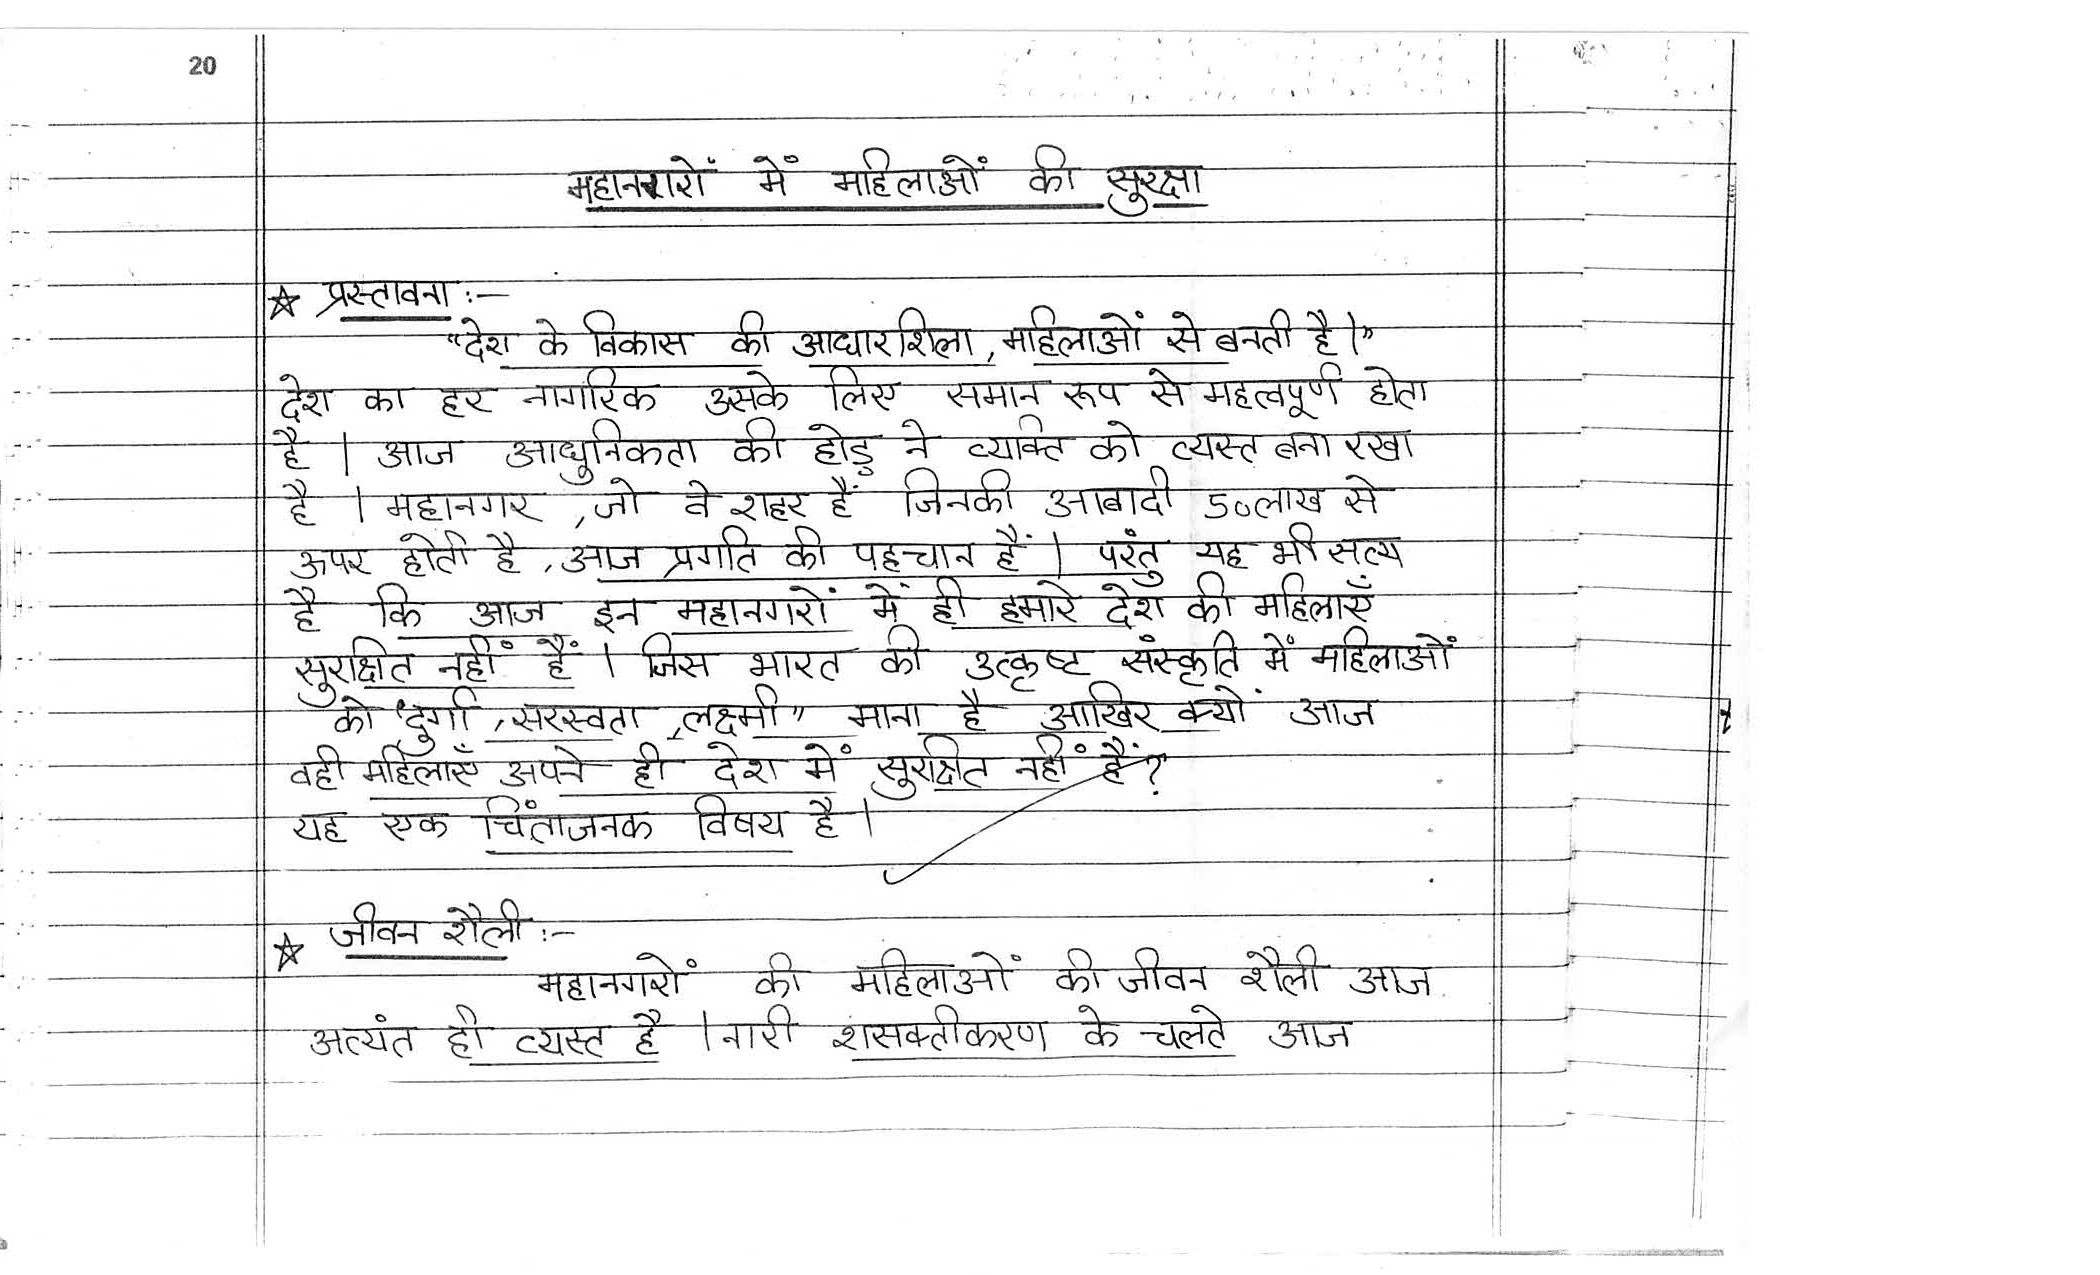 20
महानगरों में महिलाओं की सुरक्षा
☆ प्रस्तावना :-
"देश के विकास की आधारशिला, महिलाओं से बनती है।"
देश का हर नागरिक उसके लिए समान रूप से महत्वपूर्ण होता
है । आज आधुनिकता की होड़ ने व्यक्ति को व्यस्त बना रखा
है । महानगर , जो वे शहर हैं जिनकी आबादी 50लाख से
ऊपर होती है , आज प्रगति की पहचान हैं । परंतु यह भी सत्य
है कि आज इन महानगरों में ही हमारे देश की महिलाएँ
सुरक्षित नहीं हैं । जिस भारत की उत्कृष्ट संस्कृति में महिलाओं
को "दुर्गा , सरस्वती , लक्ष्मी" माना है आखिर क्यों आज
वही महिलाएँ अपने ही देश में सुरक्षित नहीं हैं ?
यह एक चिंताजनक विषय है ।
☆ जीवन शैली :-
महानगरों की महिलाओं की जीवन शैली आज
अत्यंत ही व्यस्त है । नारी शसक्तीकरण के चलते आज